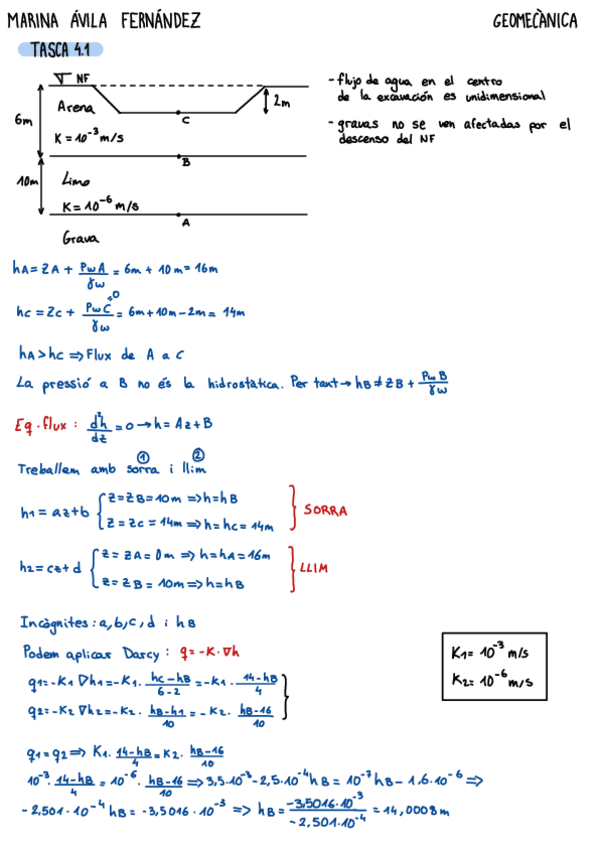 MARINA ÁVILA FERNÁNDEZ
GEOMECÀNICA
TASCA 4.1
NF
Arena
2m
C
6m
K = 10⁻³ m/s
B
10m
Limo
K = 10⁻⁶ m/s
A
Grava
- flujo de agua en el centro
de la excavación es unidimensional
- gravas no se ven afectadas por el
descenso del NF
hA = ZA + PwA/γw = 6m + 10m = 16m
hc = Zc + PwC/γw = 6m + 10m - 2m = 14m
=0
hA > hc ⇒ Flux de A a C
La pressió a B no és la hidrostàtica. Per tant → hB ≠ ZB + PwB/γw
Eq. flux : d²h/dz = 0 → h = Az + B
Treballem amb sorra ① i llim ②
h1 = az + b { z = zB = 10m ⇒ h = hB
z = zc = 14m ⇒ h = hc = 14m } SORRA
h2 = cz + d { z = zA = 0m ⇒ h = hA = 16m
z = zB = 10m ⇒ h = hB } LLIM
Incògnites : a, b, c, d i hB
Podem aplicar Darcy : q = -K · ∇h
q1 = -K1 ∇h1 = -K1 · hc - hB/6 - 2 = -K1 · 14 - hB/4
q2 = -K2 ∇h2 = -K2 · hB - h1/10 = -K2 · hB - 16/10
K1 = 10⁻³ m/s
K2 = 10⁻⁶ m/s
q1 = q2 ⇒ K1 · 14 - hB/4 = K2 · hB - 16/10
10⁻³ · 14 - hB/4 = 10⁻⁶ · hB - 16/10 ⇒ 3,5·10⁻³ - 2,5·10⁻⁴ hB = 10⁻⁷ hB - 1,6·10⁻⁶ ⇒
- 2,501 · 10⁻⁴ hB = -3,5016 · 10⁻³ ⇒ hB = -3,5016·10⁻³/-2,501·10⁻⁴ = 14,0008 m